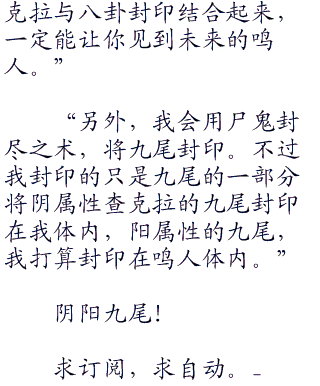 克拉与八卦封印结合起来，
一定能让你见到未来的鸣
人。”
“另外，我会用尸鬼封
尽之术，将九尾封印。不过
我封印的只是九尾的一部分
将阴属性查克拉的九尾封印
在我体内，阳属性的九尾，
我打算封印在鸣人体内。”
阴阳九尾！
求订阅，求自动。_